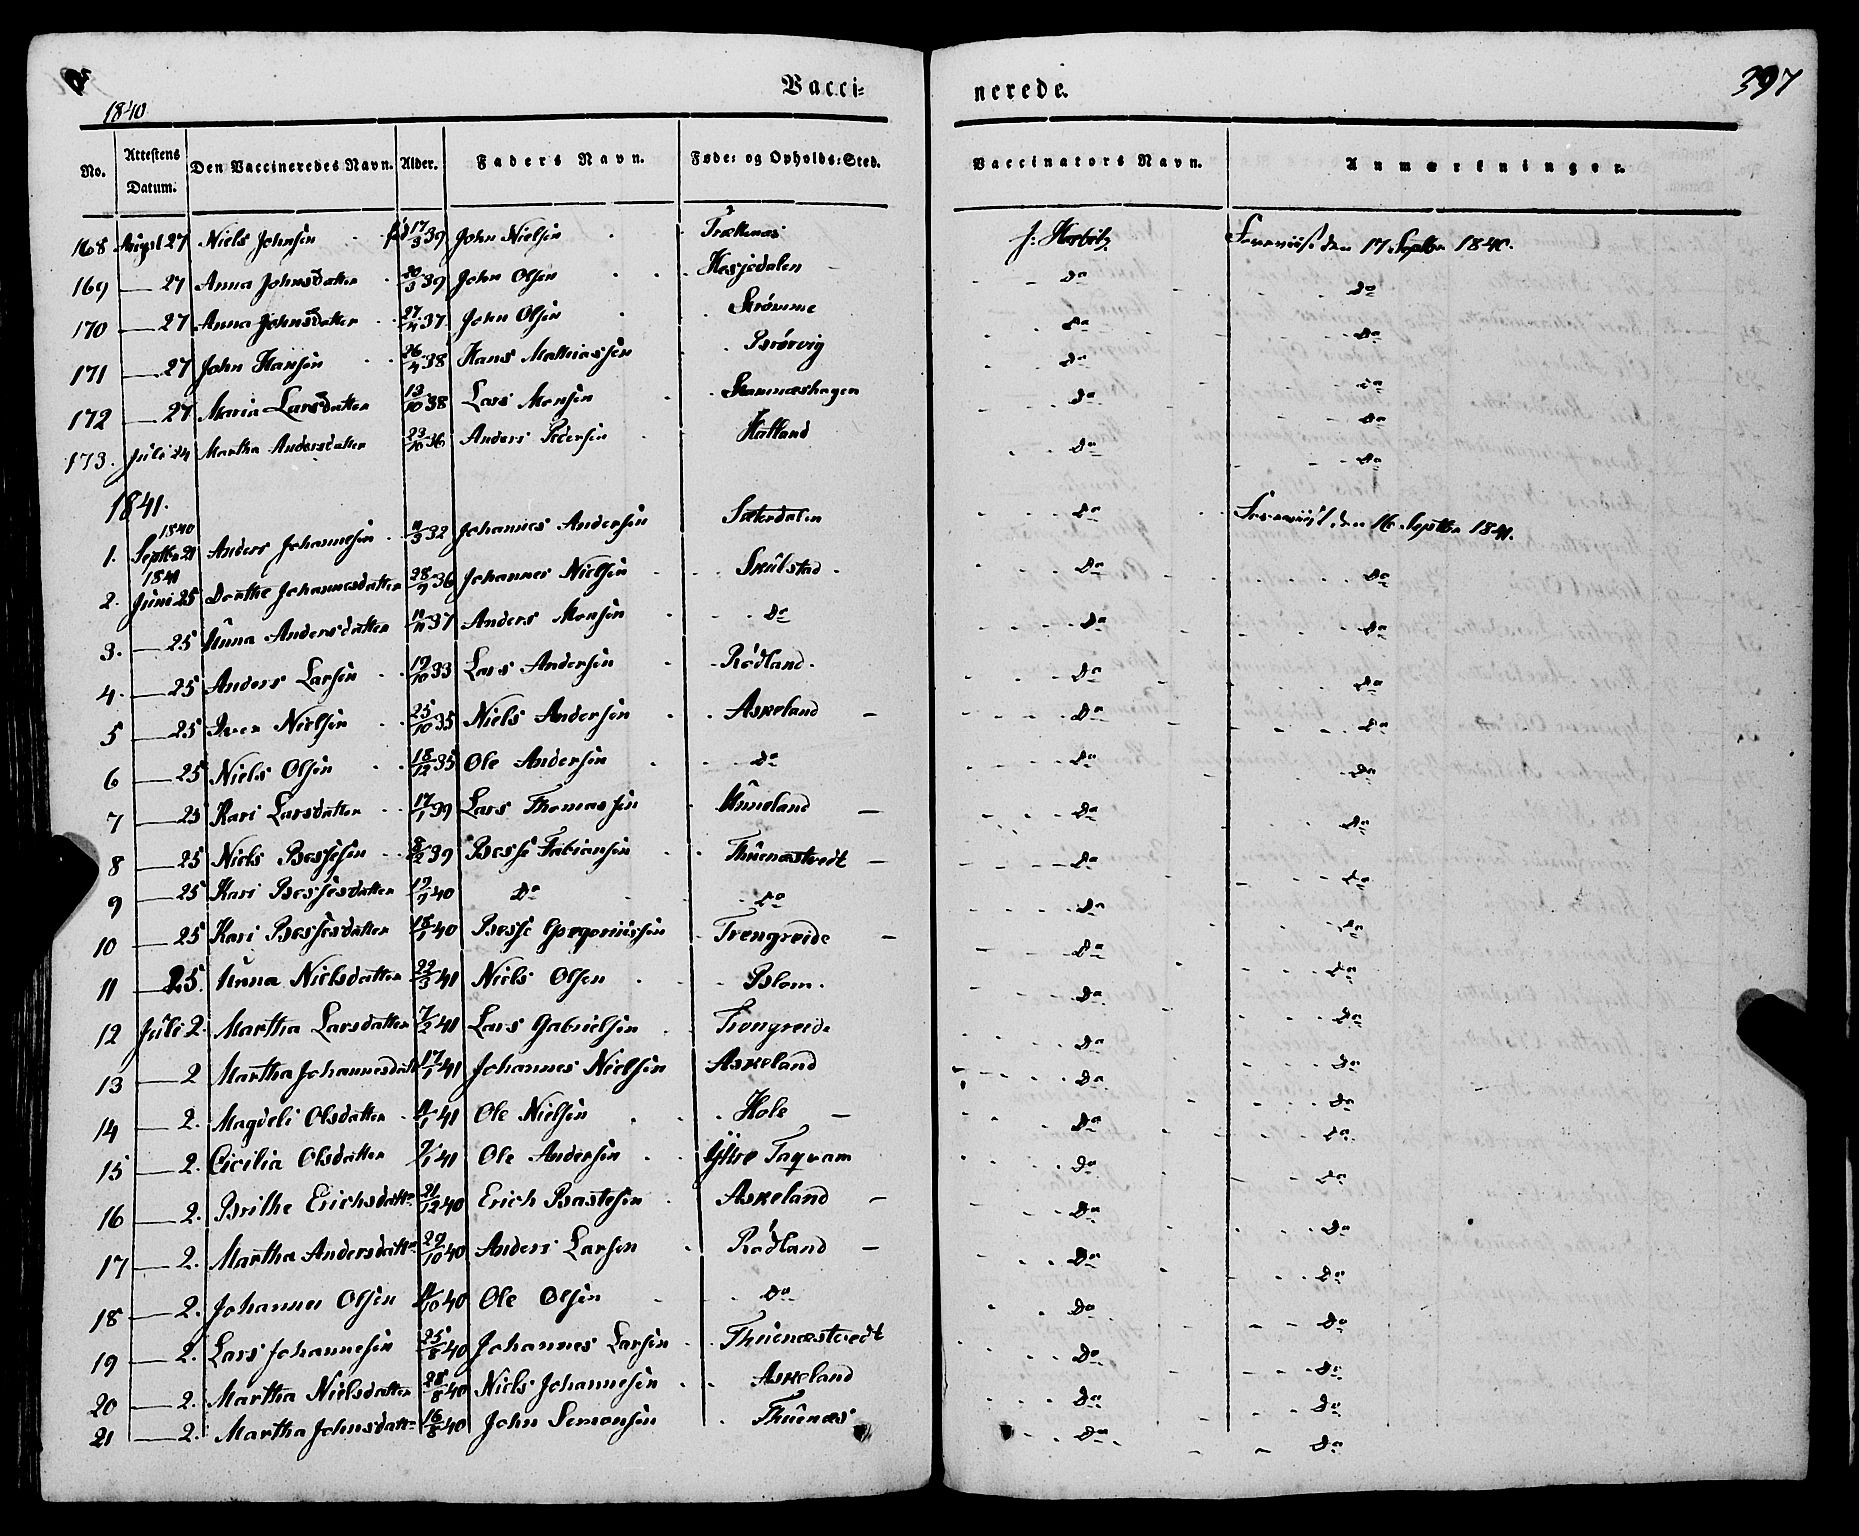 Vacci= nerede. 397
1840
No. Attestens Datum. Den Vaccineredes Navn. Alder. Faders Navn. Føde= og Opholds=Sted. Vaccinators Navn. Anmærkninger.
168 August 27 Niels Johnsen fød 17/3 39 John Nielsen J: Herbitz Foreviist den 17 Septbr 1840.
169 — 27 Anna Johnsdatter 20/3 39 John Olsen Hesjedalen Do Do
170 — 27 Anna Johnsdatter 27/4 37 John Olsen Skrømme Do Do
171 — 27 John Hansen 26/4 38 Hans Mathiassen Brørvig Do Do
172 — 27 Maria Larsdatter 13/10 38 Lars Monsen Do Do
173. Juli 24 Martha Andersdatter 23/10 36 Anders Pedersen Hatland Do Do
1841.
1. 1840 Septbr 21 Anders Johannesen 11/3 32 Johannes Andersen Sæterdalen Do Foreviist den 16 Septbr 1841.
2. 1841 Juni 25 Dorthe Johannesdatter 28/7 36 Johannes Nielsen Skulstad Do Do
3. — 25 Anna Andersdatter 11/11 37 Anders Monsen Do Do Do
4. — 25 Anders Larsen 19/10 33 Lars Andersen Rødland. Do Do
5 — 25 Iver Nielsen 25/10 35 Niels Andersen Askeland Do Do
6 — 25 Niels Olsen 18/12 35 Ole Andersen Do Do Do
7 — 25 Kari Larsdatter 17/1 39 Lars Thomassen Unneland Do Do
8 — 25 Niels Bessesen 8/2 39 Besse Fabiansen Thuenæstvedt Do Do
9 — 25 Kari Bessesdatter 19/7 40 Do Do Do Do
10 — 25 Kari Bessesdatter 18/1 40 Besse Gregoriussen Trengreide Do Do
11 — 25. Anna Nielsdatter 22/3 41 Niels Olsen Blom. Do Do
12 Juli 2. Martha Larsdatter 7/2 41 Lars Gabrielsen Trengreide Do Do
13 — 2 Martha Johannesdatt 17/1 41 Johannes Nielsen Askeland Do Do
14 — 2. Magdeli Olsdatter 11/1 41 Ole Nielsen Hole Do Do
15 — 2. Cicilia Olsdatter 7/1 41 Ole Andersen Ystre Taqvam Do Do
16 — 2. Brithe Erichsdatter 21/12 40 Erich Bastesen Askeland Do Do
17 — 2. Martha Andersdatter 29/10 40 Anders Larsen Rødland Do Do
18 — 2. Johannes Olsen 11/10 40 Ole Olsen Do Do Do
19 — 2. Lars Johannesen 25/8 40 Johannes Larsen Thuenæstvedt Do Do
20 — 2. Martha Nielsdatter 28/8 40 Niels Johannesen Askeland Do Do
21 — 2. Martha Johnsdatter 16/8 40 John Semonsen Thuenæs Do Do